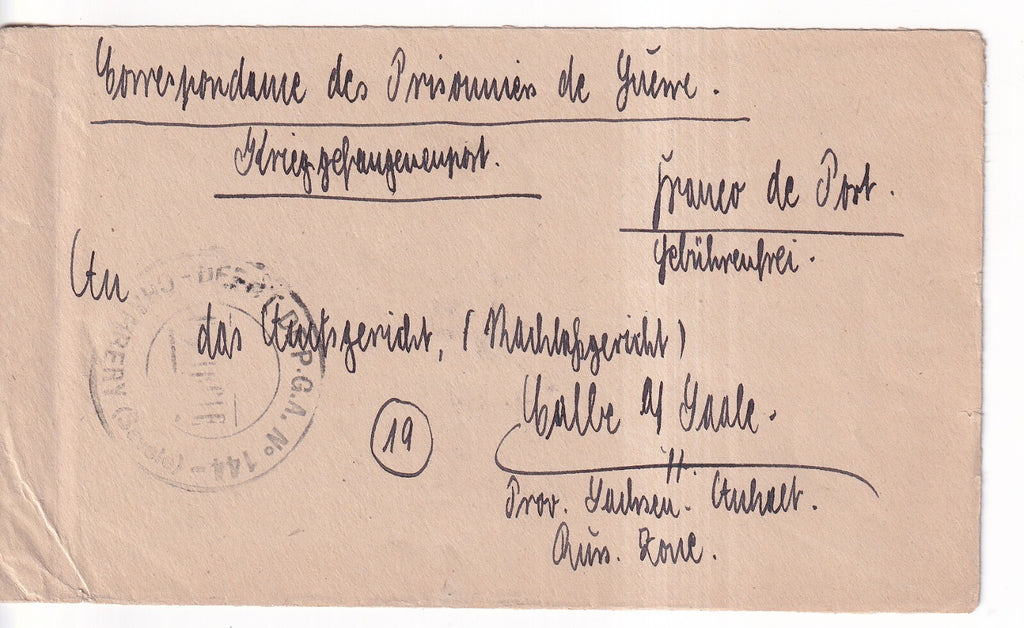 Correspondance des Prisonniers de Guerre.
Kriegsgefangenenpost.
Franco de Port.
Gebührenfrei.
An
das Amtsgericht, (Nachlaßgericht)
Calbe a/ Saale.
19
Prov. Sachsen-Anhalt.
Russ. Zone.
DÉPÔT P.G.A. N° 144 -